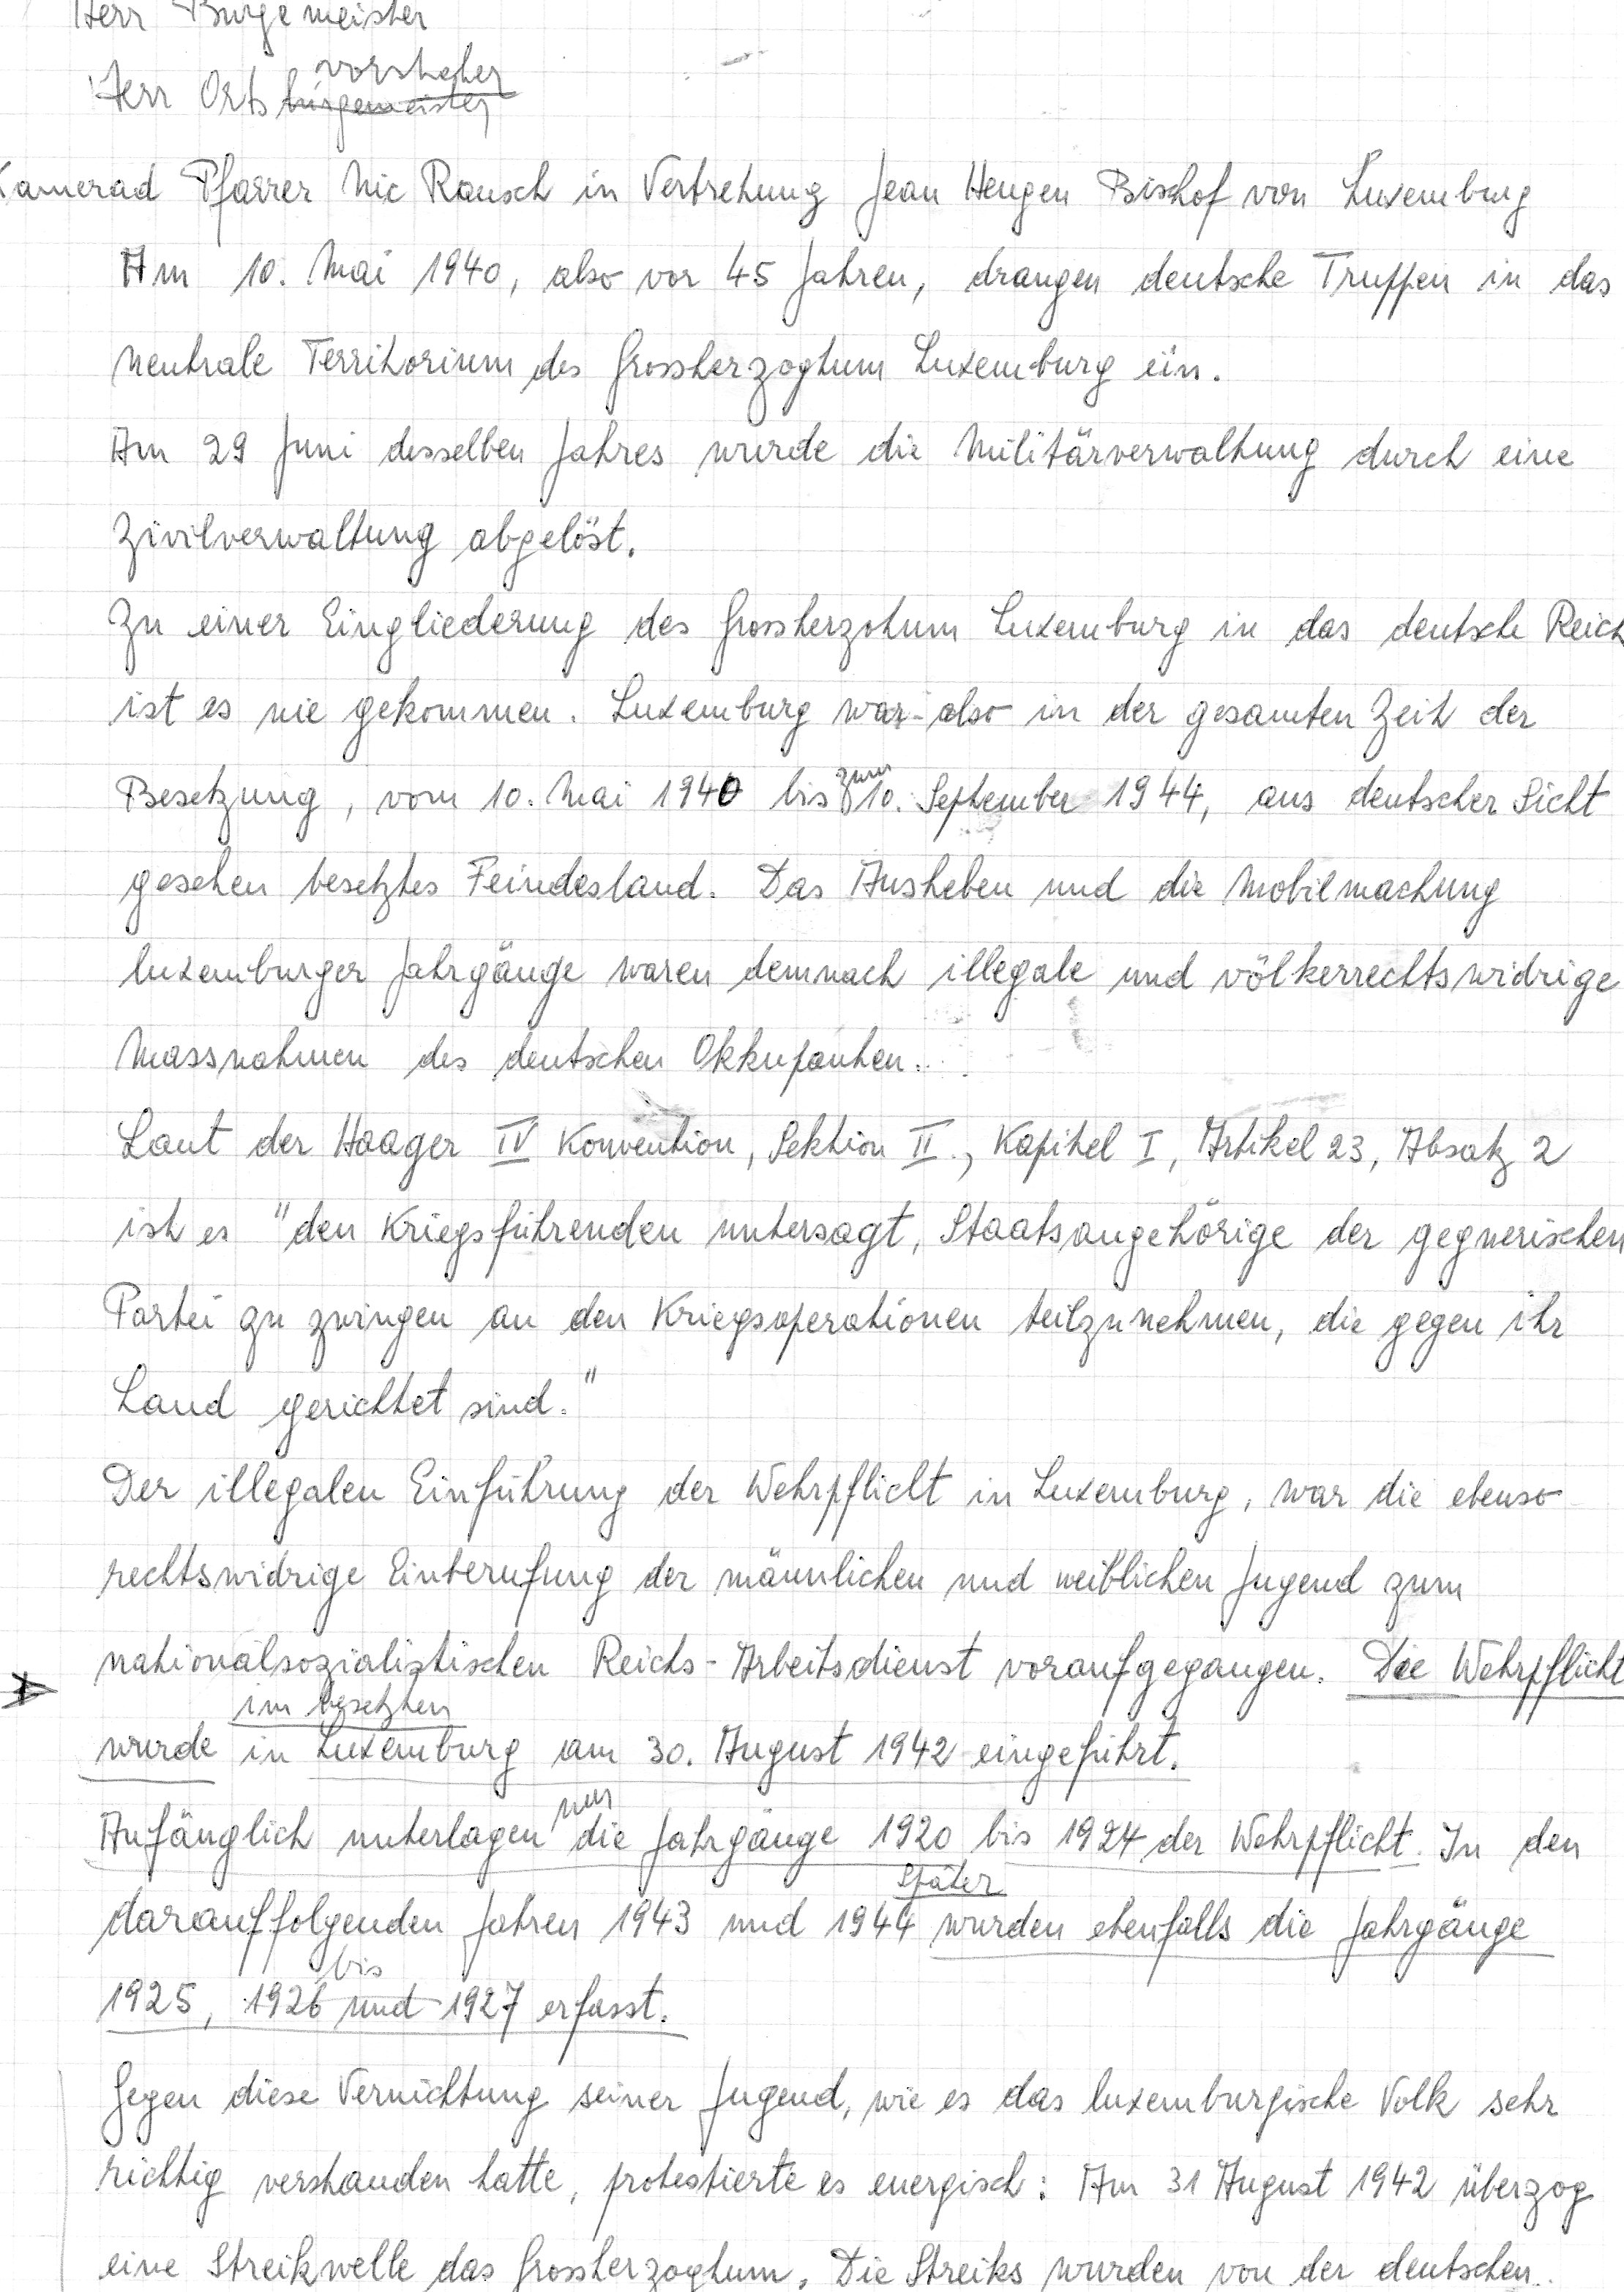 Herr Burgemeister
vorsteher
Herr Ortsbürgemeister
Kamerad Pfarrer Nic Rausch in Vertretung Jean Hengen Bischof von Luxemburg
Am 10. Mai 1940, also vor 45 Jahren, drangen deutsche Truppen in das
neutrale Territorium des Grossherzogtum Luxemburg ein.
Am 29 Juni desselben Jahres wurde die Militärverwaltung durch eine
Zivilverwaltung abgelöst.
Zu einer Eingliederung des Grossherzotum Luxemburg in das deutsche Reich
ist es nie gekommen. Luxemburg war also in der gesamten Zeit der
Besetzung, vom 10. Mai 1940 bis zum 10. September 1944, aus deutscher Sicht
gesehen besetztes Feindesland. Das Ausheben und die Mobilmachung
luxemburger Jahrgänge waren demnach illegale und völkerrechtswidrige
Massnahmen des deutschen Okkupanten.
Laut der Haager IV Konvention, Sektion II., Kapitel I, Artikel 23, Absatz 2
ist es "den Kriegsführenden untersagt, Staatsangehörige der gegnerischen
Partei zu zwingen an den Kriegsoperationen teilzunehmen, die gegen ihr
Land gerichtet sind."
Der illegalen Einführung der Wehrpflicht in Luxemburg, war die ebenso
rechtswidrige Einberufung der männlichen und weiblichen Jugend zum
nationalsozialistischen Reichs-Arbeitsdienst voraufgegangen. Die Wehrpflicht
im besetzten
wurde in Luxemburg am 30. August 1942 eingeführt.
nur
Anfänglich unterlagen die Jahrgänge 1920 bis 1924 der Wehrpflicht. In den
später
darauffolgenden Jahren 1943 und 1944 wurden ebenfalls die Jahrgänge
bis
1925, 1926 und 1927 erfasst.
Gegen diese Vernichtung seiner Jugend, wie es das luxemburgische Volk sehr
richtig verstanden hatte, protestierte es energisch: Am 31 August 1942 überzog
eine Streikwelle das Grossherzogtum. Die Streiks wurden von der deutschen